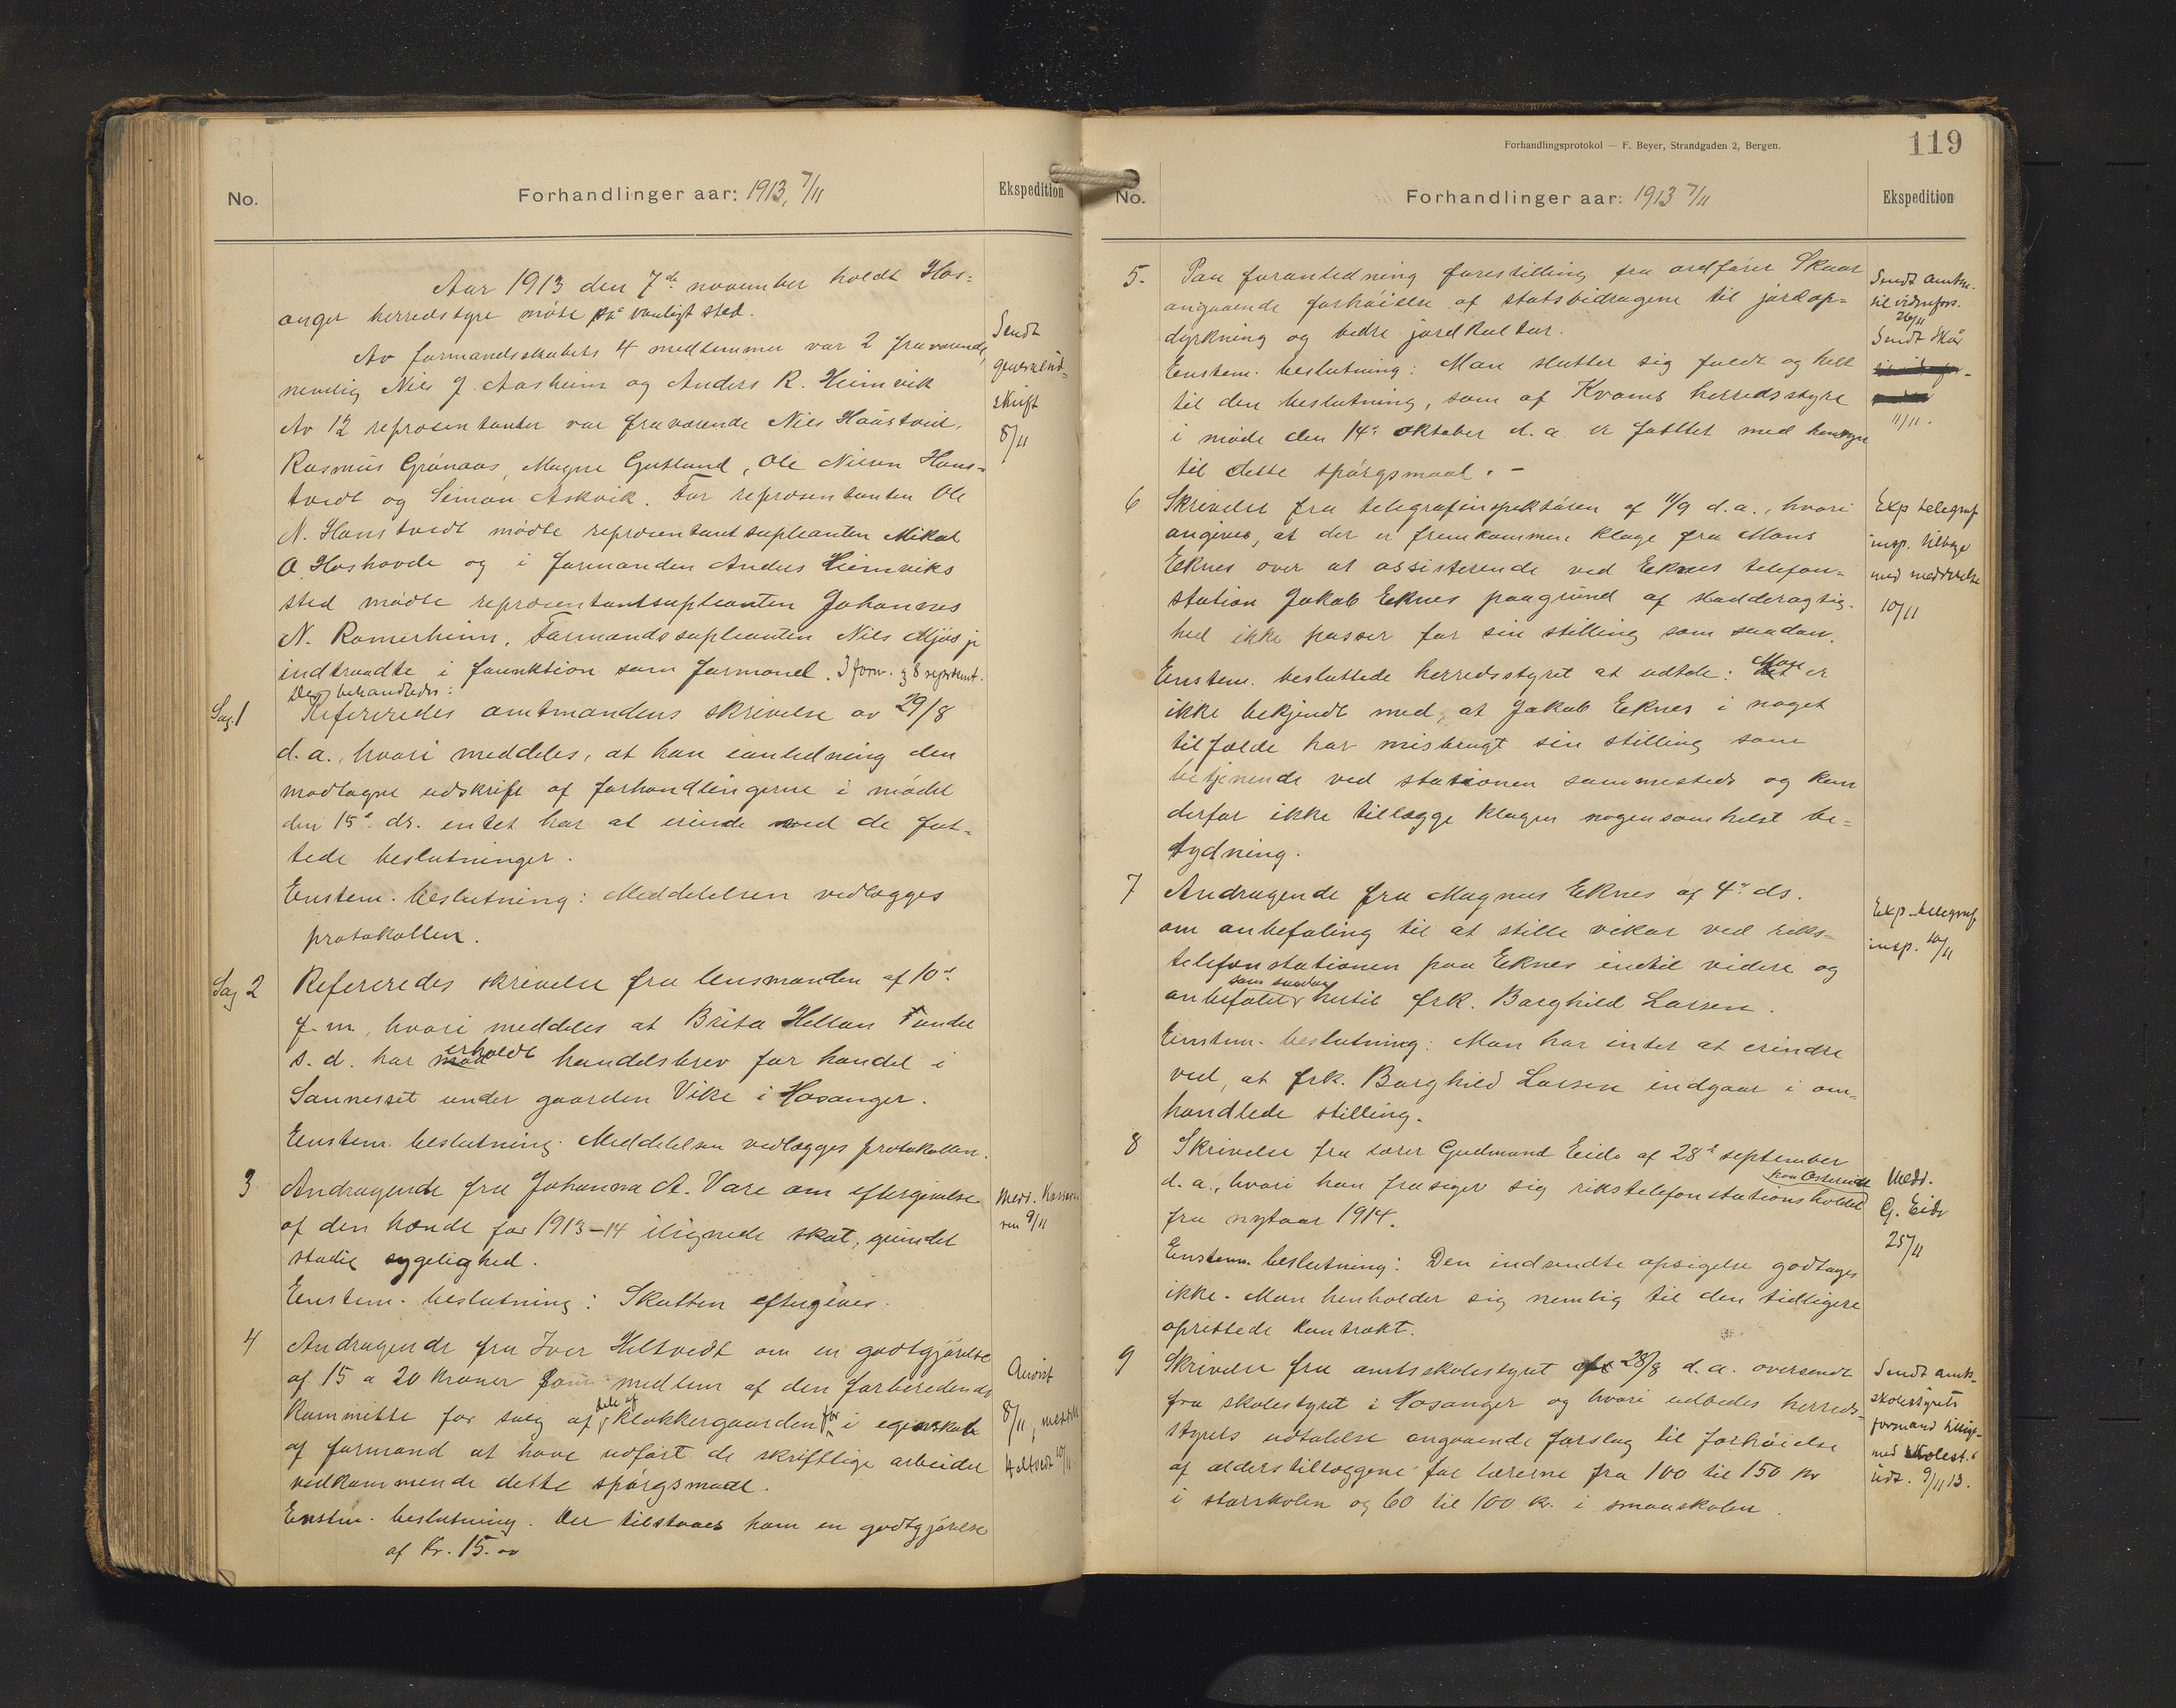 No.
Forhandlinger aar: 1913, 7/11
Ekspedition
Aar 1913 den 7de november holdt Hos=
anger herredstyre møte på vanligt sted.
Av formandskabets 4 medlemmer var 2 fraværende,
nemlig Nils J. Aasheim og Anders R. Heimvik
Av 12 repræsentanter var fraværende Nils Haustveit,
Rasmus Grønaas, Magne Gutland, Ole Nilsen Hans=
tvedt og Simon Askvik. For repræsentanten Ole
N. Hanstvedt mødte repræsentantsupleanten Mikal
O. Hoshovde og i formanden Anders Heimviks
sted mødte repræsentantsupleanten Johannes
N. Romerheim. Formandssupleanten Nils Mjøs jr
indtraadte i funktion som formand. 3 form. og 8 repræsent.
Der behandledes:
Sendt
genersalut=
skrift
8/11
Sag 1
Refereredes amtmandens skrivelse av 29/8
d.a., hvori meddeles, at han ianledning den
modtagne udskrift af forhandlingerne i mødet
den 15de ds. intet har at erindre ved de fat=
tede beslutninger.
Enstem. beslutning: Meddelelsen vedlægges
protokollen.
Sag 2
Refereredes skrivelse fra lensmanden af 10de
f.m., hvori meddeles at Brita Hellan under
s.d. har erholdt handelsbrev for handel i
Sannesset under gaarden Vike i Hosanger.
Enstem. beslutning: Meddelelsen vedlægges protokollen.
3
Andragende fra Johanna A. Vare om eftergivelse
af den hænde for 1913–14 ilignede skat, grundet
stadig sygelighed.
Enstem. beslutning: Skatten eftergives.
Medd. Kassere
ren 9/11
4
Andragende fra Iver Heltvedt om en godtgjørelse
af 15 a 20 kroner som medlem af den forberedende
kommitte for salg af dele af klokkergaarden for i egenskab
af formand at have udført de skriftlige arbeider
vedkommende dette spørgsmaal.
Enstem. beslutning. Der tilstaaes ham en godtgjørelse
af Kr. 15.00
Anvist
8/11, meddelt
Heltvedt 10/11
Forhandlingsprotokol — F. Beyer, Strandgaden 2, Bergen.
119
No.
Forhandlinger aar: 1913 7/11
Ekspedition
5.
Paa foranledning forestilling fra ordfører Skaar
angaaende forhøielse af statsbidragene til jordop=
dyrkning og bedre jordkultur.
Enstem. beslutning: Man slutter sig fuldt og helt
til den beslutning, som af Kvams herredsstyre
i møde den 14de oktober d.a. er fattet med hensyn
til dette spørgsmaal. –
Sendt amtm.
til vidrefors.
26/11
Sendt Skår
11/11.
6
Skrivelse fra telegrafinspektøren af 11/9 d.a., hvori
angives, at der er fremkommen klage fra Mons
Eknes over at assisterende ved Eknes telefon=
station Jakob Eknes paagrund af sladderagtig-
hed ikke passer for sin stilling som saadan.
Enstem. besluttede herredsstyret at udtale: Man er
ikke bekjendt med, at Jakob Eknes i noget
tilfælde har misbrugt sin stilling som
betjenende ved stationen sammesteds og kan
derfor ikke tillægge klagen nogensomhelst be=
tydning.
Exp telegraf
insp. tilbage
med meddelelse
10/11
7
Andragende fra Magnus Eknes af 4de ds.
om anbefaling til at stille vikar ved riks=
telefonstationen paa Eknes indtil videre og
anbefaler som saadan hertil frk. Borghild Larsen.
Enstem. beslutning: Man har intet at erindre
ved, at frk. Borghild Larsen indgaar i om=
handlede stilling.
Exp. telegraf
insp. 10/11
8
Skrivelse fra lærer Gudmund Eide af 28de september
d.a., hvori han frasiger sig rikstelefonstationsholdet paa Ostereidet
fra nytaar 1914.
Enstem. beslutning: Den indsendte opsigelse godtages
ikke. Man henholder sig nemlig til den tidligere
oprettede kontrakt.
Medd.
G. Eide
25/11
9
Skrivelse fra amtsskolestyret af 28/8 d.a. oversendt
fra skolestyret i Hosanger og hvori udbedes herreds=
styrets udtalelse angaaende forslag til forhøielse
af alderstillæggene for lærerne fra 100 til 150 kr
i storskolen og 60 til 100 kr. i smaaskolen.
Sendt amts-
skolestyrets
formand tillige-
med skolest.s
udt. 9/11 13.